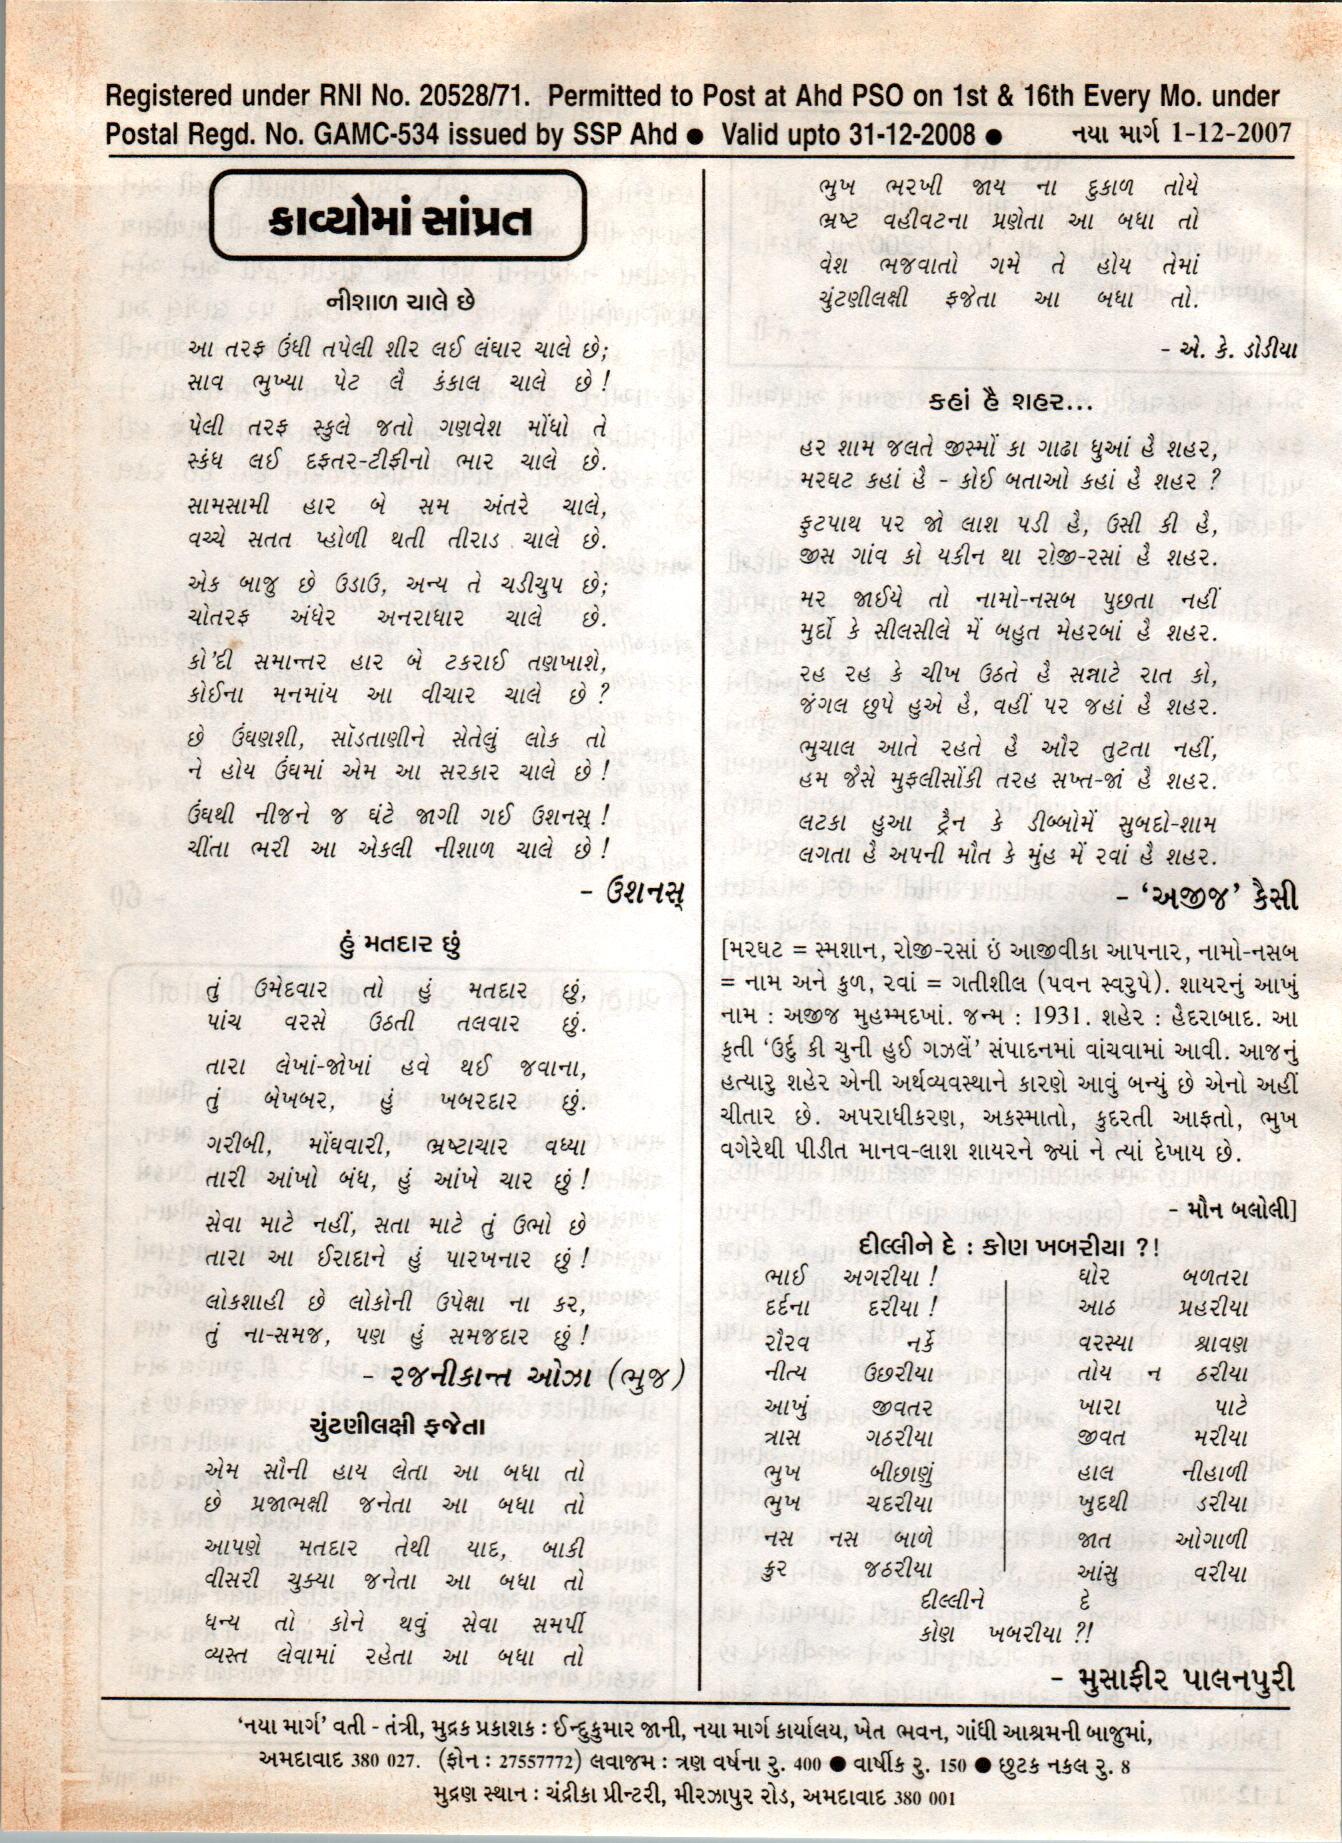 Registered under RNI No. 20528/71. Permitted to Post at Ahd PSO on 1st & 16th Every Mo. under
Postal Regd. No. GAMC-534 issued by SSP Ahd ● Valid upto 31-12-2008 ● નયા માર્ગ 1-12-2007
કાવ્યોમાં સાંપ્રત
નીશાળ ચાલે છે
આ તરફ ઉંધી તપેલી શીર લઈ લંઘાર ચાલે છે;
સાવ ભુખ્યા પેટ લૈ કંકાલ ચાલે છે !
પેલી તરફ સ્કુલે જતો ગણવેશ મોંઘો તે
સ્કંધ લઈ દફતર-ટીફીનો ભાર ચાલે છે.
સામસામી હાર બે સમ અંતરે ચાલે,
વચ્ચે સતત પ્હોળી થતી તીરાડ ચાલે છે.
એક બાજુ છે ઉડાઉ, અન્ય તે ચડીચુપ છે;
ચોતરફ અંધેર અનરાધાર ચાલે છે.
કો'દી સમાન્તર હાર બે ટકરાઈ તણખાશે,
કોઈના મનમાંય આ વીચાર ચાલે છે ?
છે ઉંઘણશી, સૉડતાણીને સેતેલું લોક તો
ને હોય ઉંઘમાં એમ આ સરકાર ચાલે છે !
ઉંઘથી નીજને જ ઘંટે જાગી ગઈ ઉશનસ્ !
ચીંતા ભરી આ એકલી નીશાળ ચાલે છે !
- ઉશનસ્
હું મતદાર છું
તું ઉમેદવાર તો હું મતદાર છું,
પાંચ વરસે ઉઠતી તલવાર છું.
તારા લેખાં-જોખાં હવે થઈ જવાના,
તું બેખબર, હું ખબરદાર છું.
ગરીબી, મોંઘવારી, ભ્રષ્ટાચાર વધ્યા
તારી આંખો બંધ, હું આંખે ચાર છું !
સેવા માટે નહીં, સતા માટે તું ઉભો છે
તારા આ ઈરાદાને હું પારખનાર છું !
લોકશાહી છે લોકોની ઉપેક્ષા ના કર,
તું ના-સમજ, પણ હું સમજદાર છું !
- રજનીકાન્ત ઓઝા (ભુજ)
ચુંટણીલક્ષી ફજેતા
એમ સૌની હાય લેતા આ બધા તો
છે પ્રજાભક્ષી જનેતા આ બધા તો
આપણે મતદાર તેથી યાદ, બાકી
વીસરી ચુક્યા જનેતા આ બધા તો
ધન્ય તો કોને થવું સેવા સમર્પી
વ્યસ્ત લેવામાં રહેતા આ બધા તો
ભુખ ભરખી જાય ના દુકાળ તોયે
ભ્રષ્ટ વહીવટના પ્રણેતા આ બધા તો
વેશ ભજવાતો ગમે તે હોય તેમાં
ચુંટણીલક્ષી ફજેતા આ બધા તો.
- એ. કે. ડોડીયા
કહાં હૈ શહર...
હર શામ જલતે જીસ્મોં કા ગાઢા ધુઆં હૈ શહર,
મરઘટ કહાં હૈ - કોઈ બતાઓ કહાં હૈ શહર ?
ફુટપાથ પર જો લાશ પડી હૈ, ઉસી કી હૈ,
જીસ ગાંવ કો યકીન થા રોજી-રસાં હૈ શહર.
મર જાઈયે તો નામો-નસબ પુછતા નહીં
મુર્દો કે સીલસીલે મેં બહુત મેહરબાં હૈ શહર.
રહ રહ કે ચીખ ઉઠતે હૈ સન્નાટે રાત કો,
જંગલ છુપે હુએ હૈ, વહીં પર જહાં હૈ શહર.
ભુચાલ આતે રહતે હૈ ઔર તુટતા નહીં,
હમ જૈસે મુફલીસોંકી તરહ સખ્ત-જાં હૈ શહર.
લટકા હુઆ ટ્રૈન કે ડીબ્બોમેં સુબદો-શામ
લગતા હૈ અપની મૌત કે મુંહ મેં રવાં હૈ શહર.
- ‘અજીજ’ કૈસી
[મરઘટ = સ્મશાન, રોજી-રસાં ઇં આજીવીકા આપનાર, નામો-નસબ
= નામ અને કુળ, રવાં = ગતીશીલ (પવન સ્વરુપે). શાયરનું આખું
નામ : અજીજ મુહમ્મદખાં. જન્મ : 1931. શહેર : હૈદરાબાદ. આ
કૃતી ‘ઉર્દુ કી ચુની હુઈ ગઝલેં’ સંપાદનમાં વાંચવામાં આવી. આજનું
હત્યારુ શહેર એની અર્થવ્યવસ્થાને કારણે આવું બન્યું છે એનો અહીં
ચીતાર છે. અપરાધીકરણ, અકસ્માતો, કુદરતી આફતો, ભુખ
વગેરેથી પીડીત માનવ-લાશ શાયરને જ્યાં ને ત્યાં દેખાય છે.
- મૌન બલોલી]
દીલ્લીને દે : કોણ ખબરીયા ?!
ભાઈ અગરીયા !
દર્દના દરીયા !
રૌરવ નર્કે
નીત્ય ઉછરીયા
આખું જીવતર
ત્રાસ ગઠરીયા
ભુખ બીછાણું
ભુખ ચદરીયા
નસ નસ બાળે
ક્રુર જઠરીયા
ઘોર બળતરા
આઠ પ્રહરીયા
વરસ્યા શ્રાવણ
તોય ન ઠરીયા
ખારા પાટે
જીવત મરીયા
હાલ નીહાળી
ખુદથી ડરીયા
જાત ઓગાળી
આંસુ વરીયા
દીલ્લીને દે
કોણ ખબરીયા ?!
- મુસાફીર પાલનપુરી
‘નયા માર્ગ’ વતી - તંત્રી, મુદ્રક પ્રકાશક : ઈન્દુકુમાર જાની, નયા માર્ગ કાર્યાલય, ખેત ભવન, ગાંધી આશ્રમની બાજુમાં,
અમદાવાદ 380 027. (ફોન : 27557772) લવાજમ : ત્રણ વર્ષના રુ. 400 ● વાર્ષીક રુ. 150 ● છુટક નકલ રુ. 8
મુદ્રણ સ્થાન : ચંદ્રીકા પ્રીન્ટરી, મીરઝાપુર રોડ, અમદાવાદ 380 001